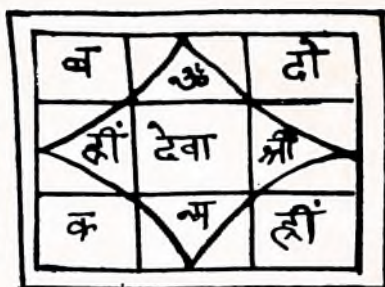 ब ॐ दो
ह्रीं देवा श्री
क न्म ह्रीं